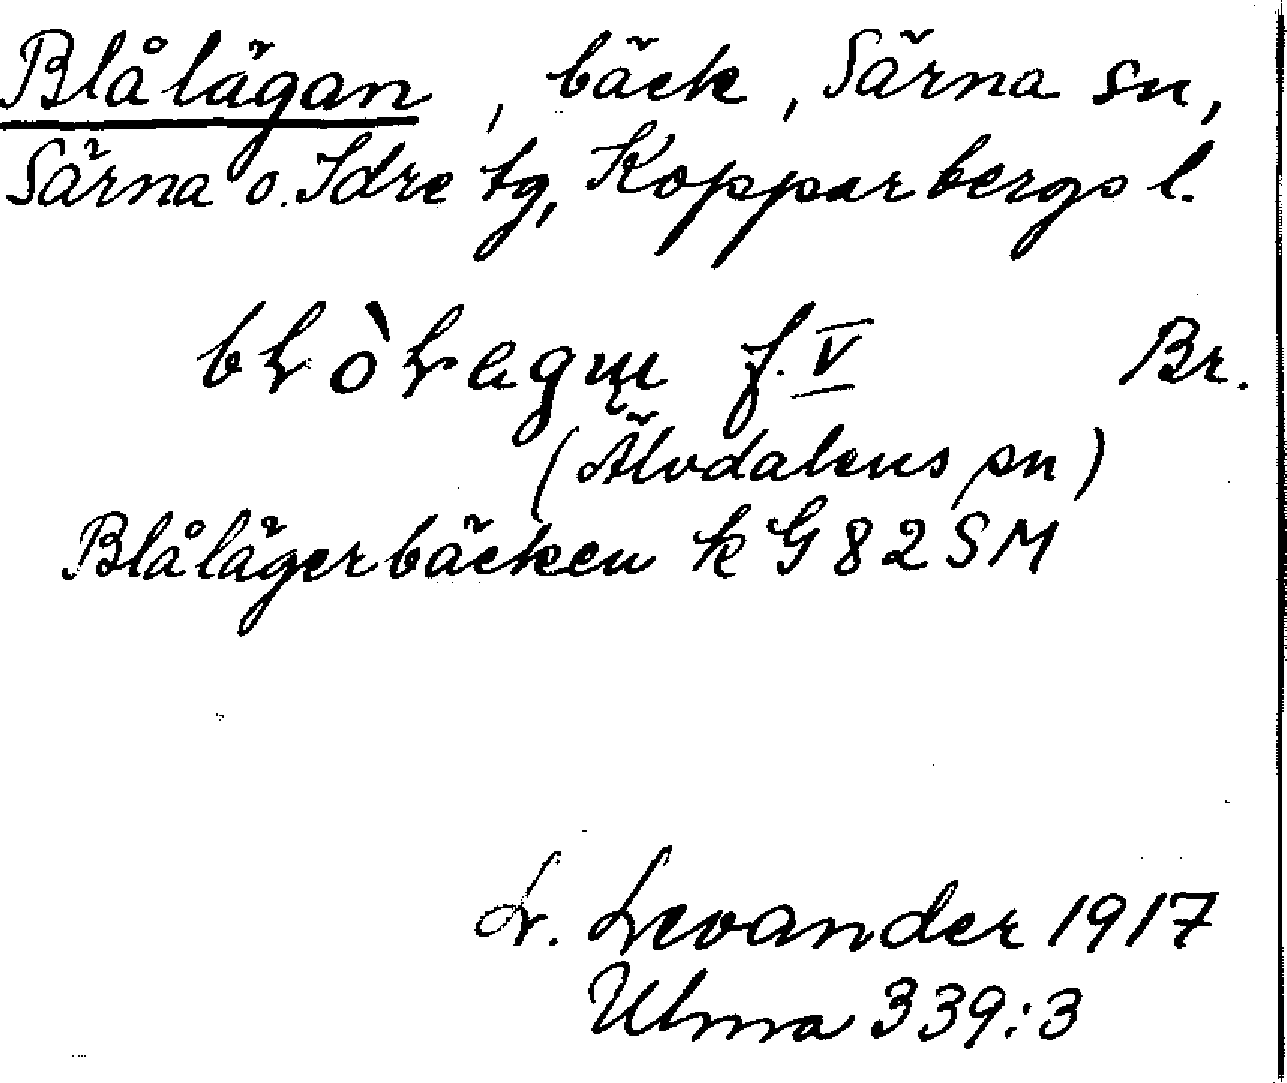 Blålägan, bäck, Särna sn,
Särna o. Idre tg, Kopparbergs l.
f. V Br.
(Älvdalens sn)
Blålägerbäcken k G 82 SM
L. Levander 1917
Ulma 339:3